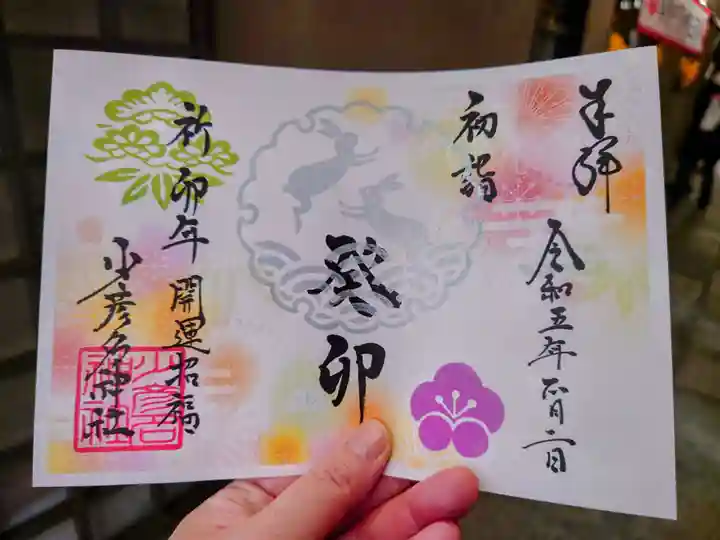 奉拝
令和五年正月二日
初詣
癸卯
祈卯年開運招福
少彦名神社
少彦名神社